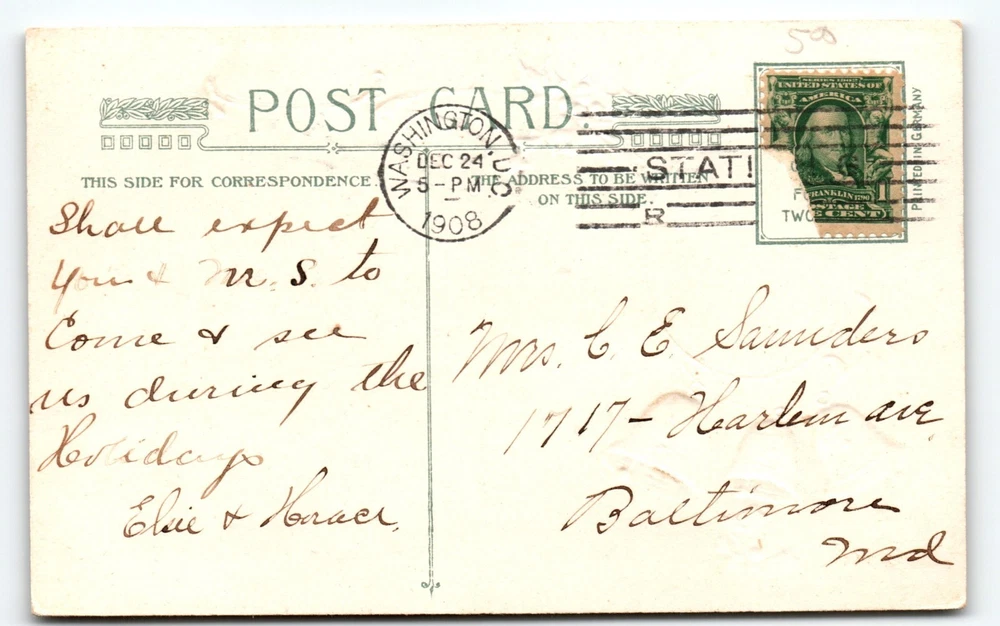 50
POST CARD.
THIS SIDE FOR CORRESPONDENCE.
THE ADDRESS TO BE WRITTEN
ON THIS SIDE.
WASHINGTON, D.C.
DEC 24
5-PM
1908
STATI
R
SERIES 1902
UNITED STATES OF
AMERICA
FRANKLIN
CENT
TWO
PRINTED IN GERMANY
Shall expect
you & Mr. S. to
Come & see
us during the
Holidays
Elsie & Horace.
Mrs. C. E. Saunders
1717- Harlem ave
Baltimore
Md